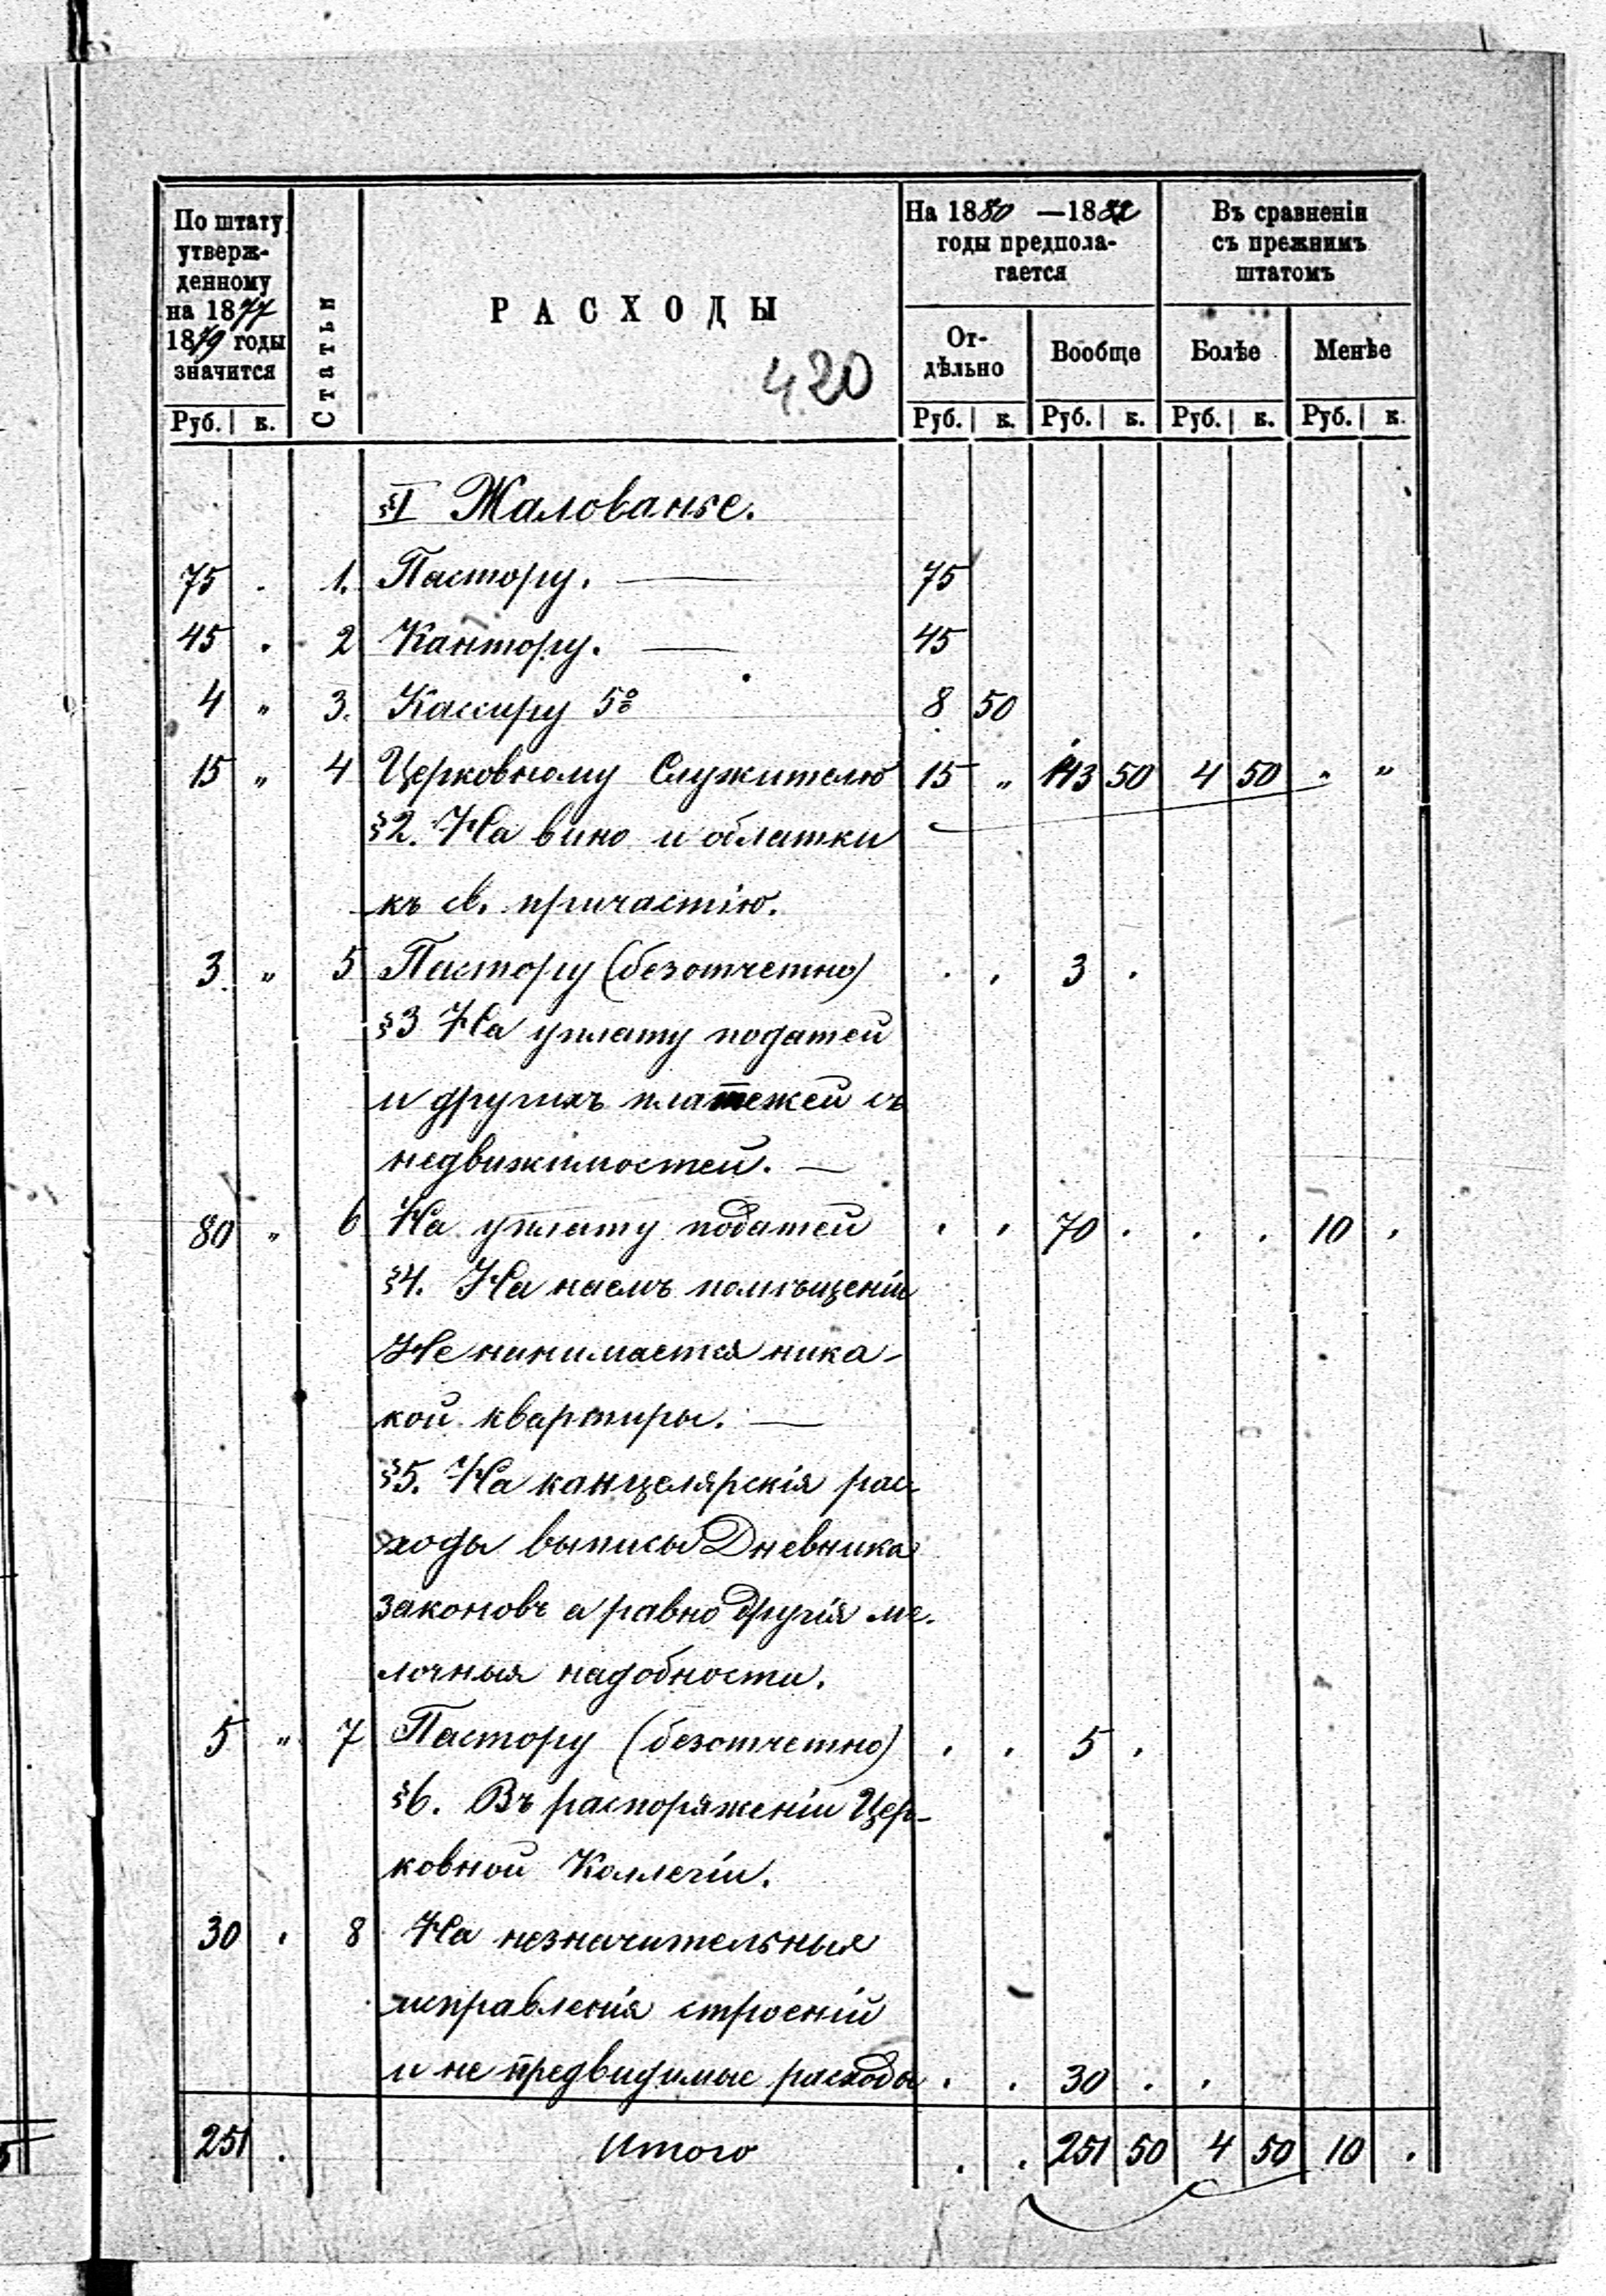 По штату утверж- денному на 1877 1879 годы значится
Статьи
РАСХОДЫ
420
На 1880 —1882 годы предпола- гается
Въ сравненіи съ прежнимъ штатомъ
От- дѣльно
Вообще
Болѣе
Менѣе
Руб. к. Руб. к. Руб. к. Руб. к. Руб. к.
§I Жалованье.
75 . 1. Пастору. — 75
45 . 2 Кантору. — 45
4 „ 3. Кассиру 5% 8 50
15 „ 4 Церковному Служителю 15 „ 143 50 4 50 „ „
§2. На вино и облатки
къ св. причастію.
3 „ 5 Пастору (безотчетно) . . 3 .
§3 На уплату податей
и другихъ платежей съ
недвижимостей. —
80 „ 6 На уплату податей . . 70 . . . 10 .
§4. На наемъ помѣщеніи
Не нанимается ника-
кой квартиры. —
§5. На канцелярскія рас-
ходы выписы Дневника
законовъ а равно другія ме-
лочныя надобности.
5 „ 7 Пастору (безотчетно) . . 5 .
§6. Въ распоряженіи Цер-
ковной Коллегіи.
30 . 8 На незначительныя
исправленія строеній
и не предвидимые расходы . . 30 . .
251 . Итого . . 251 50 4 50 10 .